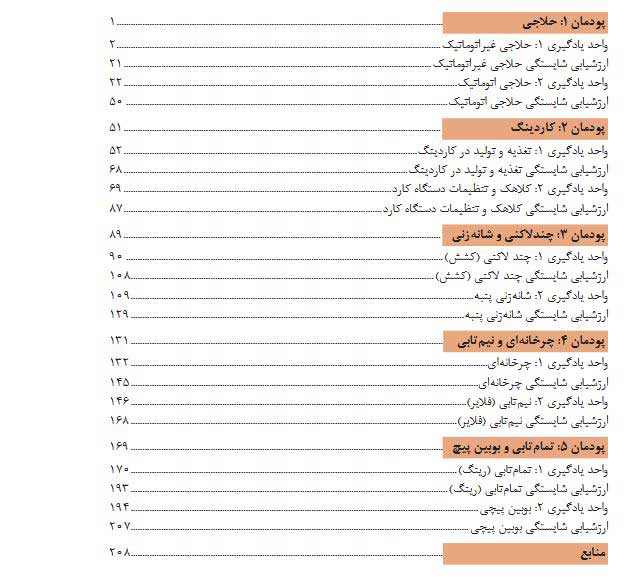 پودمان ۱: حلاجی ۱
واحد یادگیری ۱: حلاجی غیراتوماتیک ۲
ارزشیابی شایستگی حلاجی غیراتوماتیک ۲۱
واحد یادگیری ۲: حلاجی اتوماتیک ۲۲
ارزشیابی شایستگی حلاجی اتوماتیک ۵۰
پودمان ۲: کاردینگ ۵۱
واحد یادگیری ۱: تغذیه و تولید در کاردینگ ۵۲
ارزشیابی شایستگی تغذیه و تولید در کاردینگ ۶۸
واحد یادگیری ۲: کلاهک و تنظیمات دستگاه کارد ۶۹
ارزشیابی شایستگی کلاهک و تنظیمات دستگاه کارد ۸۷
پودمان ۳: چندلاکنی و شانه‌زنی ۸۹
واحد یادگیری ۱: چند لاکنی (کشش) ۹۰
ارزشیابی شایستگی چند لاکنی (کشش) ۱۰۸
واحد یادگیری ۲: شانه‌زنی پنبه ۱۰۹
ارزشیابی شایستگی شانه‌زنی پنبه ۱۲۹
پودمان ۴: چرخانه‌ای و نیم‌تابی ۱۳۱
واحد یادگیری ۱: چرخانه‌ای ۱۳۲
ارزشیابی شایستگی چرخانه‌ای ۱۴۵
واحد یادگیری ۲: نیم‌تابی (فلایر) ۱۴۶
ارزشیابی شایستگی نیم‌تابی (فلایر) ۱۶۸
پودمان ۵: تمام‌تابی و بوبین پیچ ۱۶۹
واحد یادگیری ۱: تمام‌تابی (رینگ) ۱۷۰
ارزشیابی شایستگی تمام‌تابی (رینگ) ۱۹۳
واحد یادگیری ۲: بوبین پیچی ۱۹۴
ارزشیابی شایستگی بوبین پیچی ۲۰۷
منابع ۲۰۸